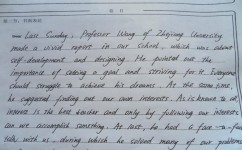 Last Sunday, Professor Wang of Zhejiang University
made a vivid report in our school, which was about
self-development and designing. He pointed out the
importance of setting a goal and striving for it. Everyone
should struggle to achieve his dreams. At the same time,
he suggested finding out our own interests. As is known to all,
interest is the best teacher and only by following our interests
can we accomplish something. At last, he had a face-to-fa
talk with us, during which he solved many of our problems